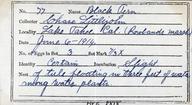 No. 77 Name Black Tern
Collector Chase Littlejohn
Locality Lake Tahoe Cal. (Rowlands marsh)
Date June 6-1916
No. of Eggs in Set 3 Set Mark
Identity Certain Incubation Slight
Nest of tule floating in three feet of water
among water plants